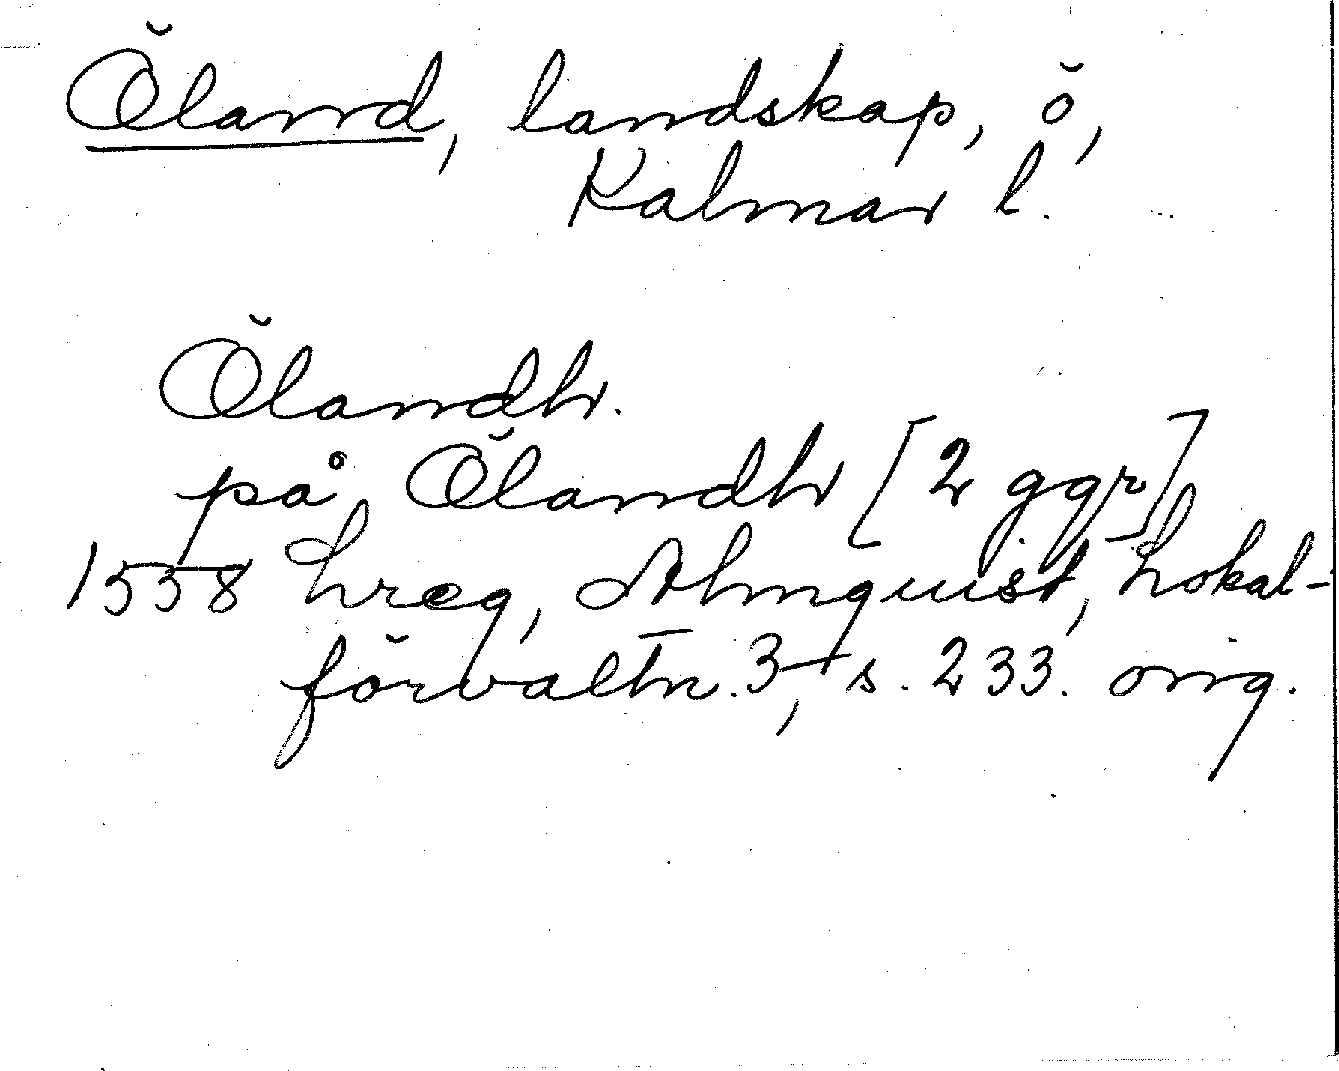 Öland, landskap, ö,
Kalmar l.
Ölandh.
på Ölandh [2 ggr]
1558 hreg, Almquist, Lokal-
förvaltn. 3, s. 233. orig.